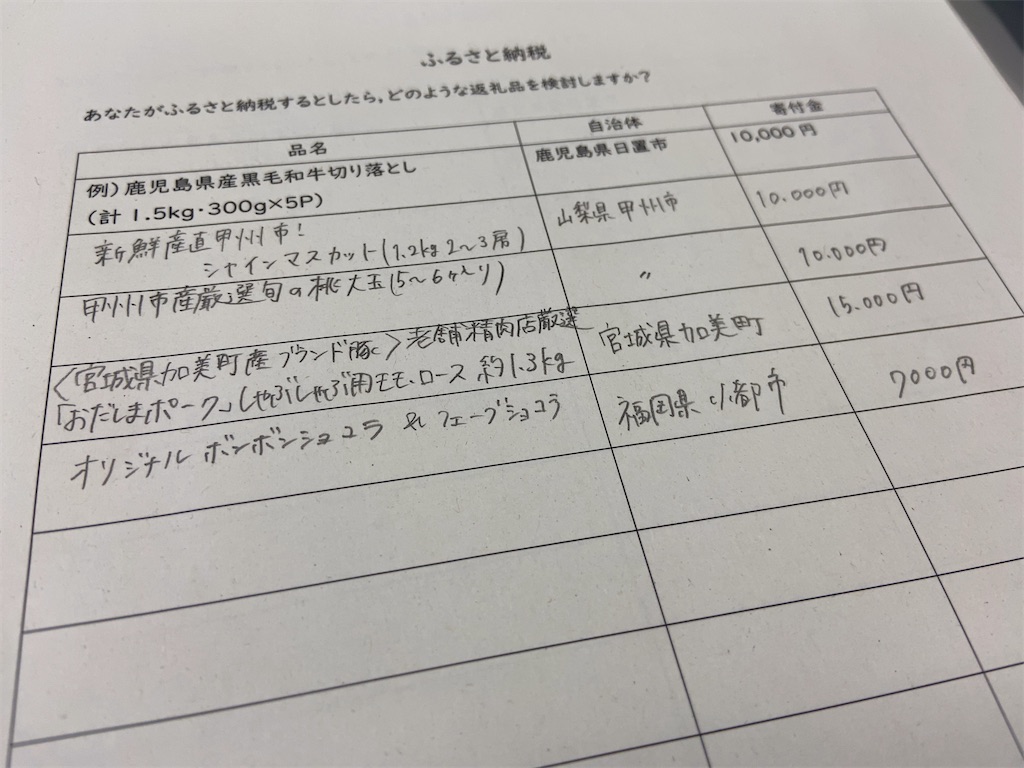 ふるさと納税
あなたがふるさと納税するとしたら,どのような返礼品を検討しますか?
品名 自治体 寄付金
例)鹿児島県産黒毛和牛切り落とし 鹿児島県日置市 10,000円
(計 1.5kg・300g×5P)
新鮮産直甲州市! 山梨県甲州市 10.000円
シャインマスカット(1.2kg 2~3房)
甲州市産厳選旬の桃大玉(5~6ヶ入り) 〃 10.000円
<宮城県加美町産ブランド豚>老舗精肉店厳選 宮城県加美町 15.000円
「おだしまポーク」しゃぶしゃぶ用モモ、ロース 約1.3kg
オリジナル ボンボンショコラ & フェーブショコラ 福岡県小郡市 7000円